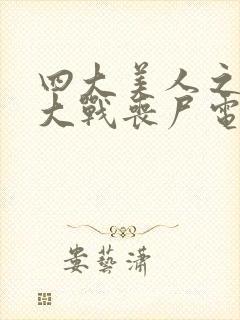 四大美人之
大戰喪尸電
娄藝潇